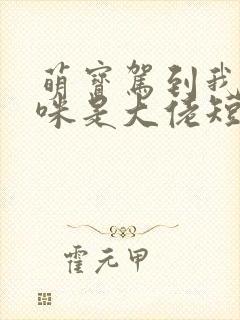 萌寳駕到我
咪是大佬短
霍元甲